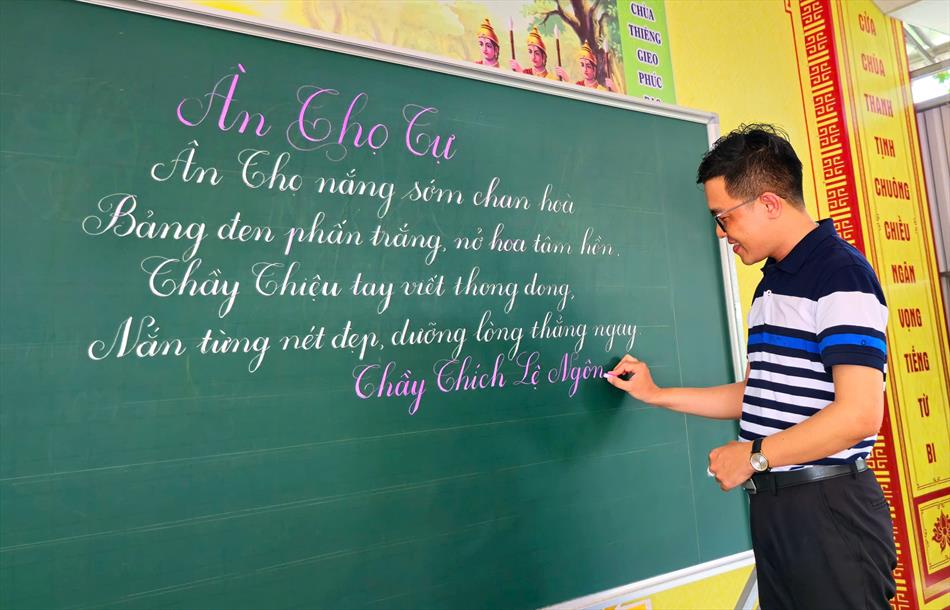 CHÙA
THIÊNG
GIEO
PHÚC
Ân Thọ Tự
Ân Thọ nắng sớm chan hoà
Bảng đen phấn trắng, nở hoa tâm hồn.
Thầy Thiệu tay viết thong dong,
Nắn từng nét đẹp, dưỡng lòng thẳng ngay.
Thầy Thích Lệ Ngôn
CỬA
CHÙA
THANH
TỊNH
CHUÔNG
CHIỀU
NGÂN
VỌNG
TIẾNG
TỪ
BI